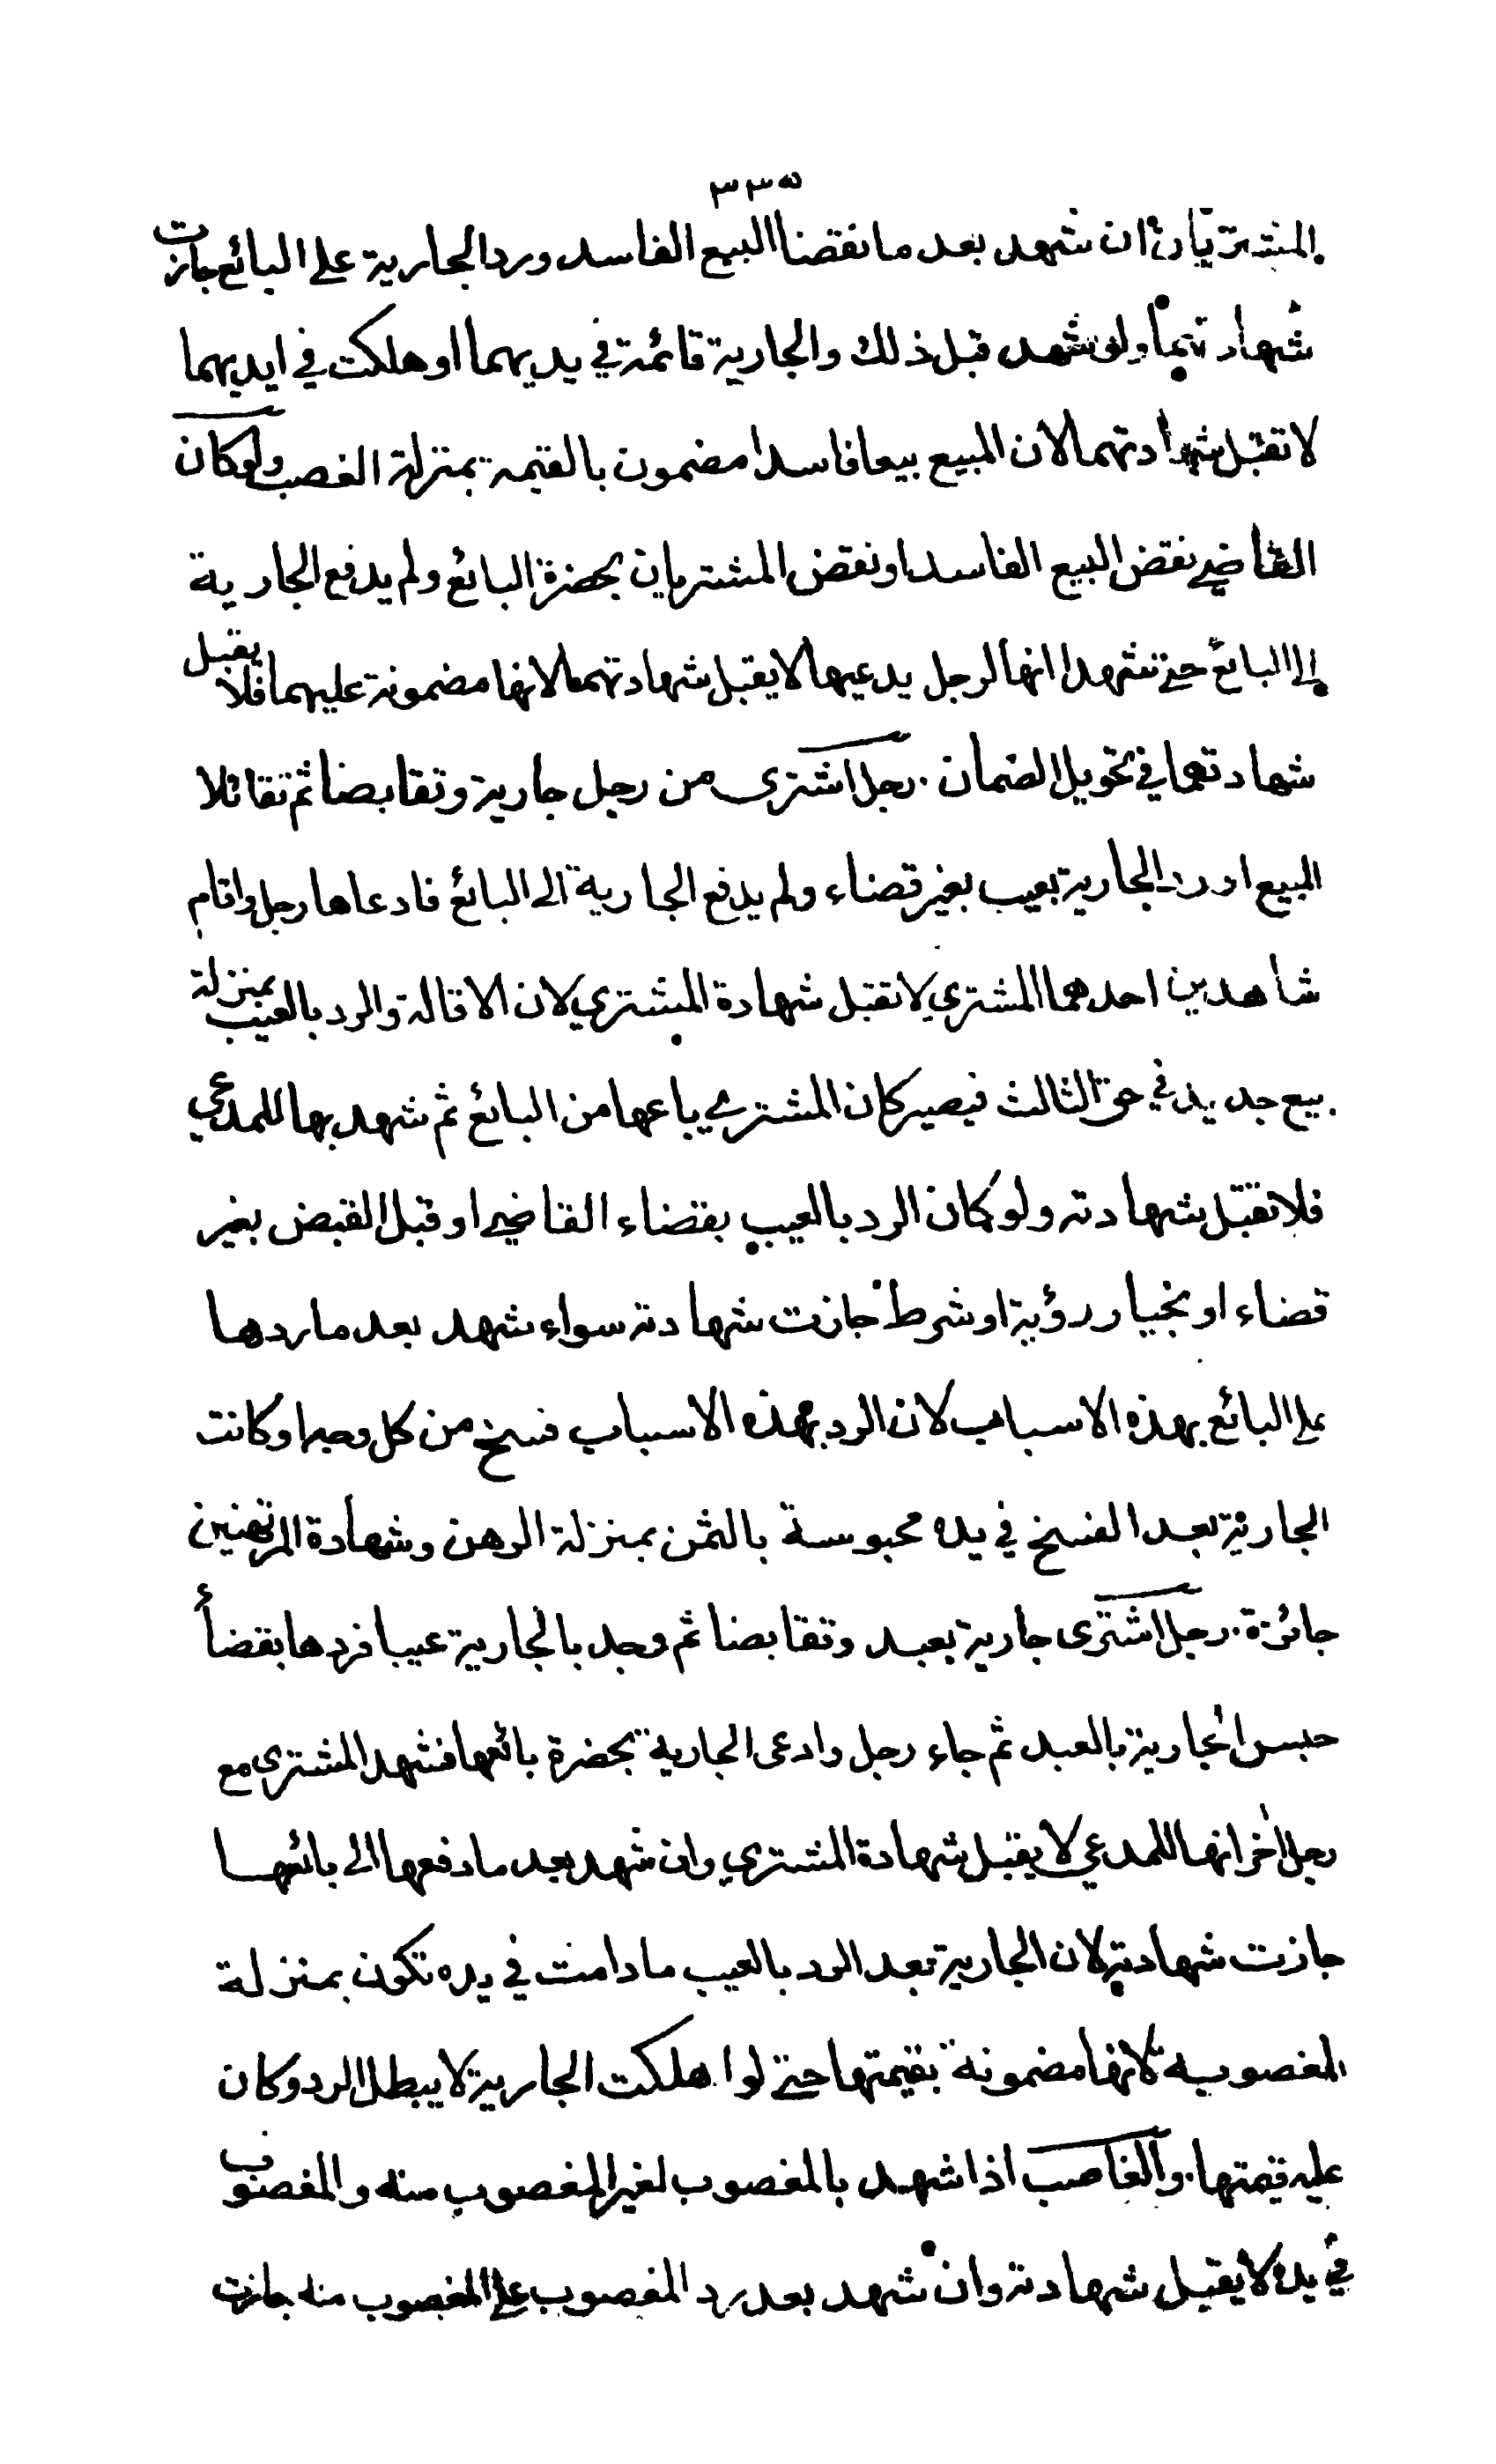 ٣٣٥
المشتريان ان شهد بعد ما نقضا البيع الفاسد ورد الجارية على البائع جازت
شهادتهما ولو شهد قبل ذلك والجارية قائمة في يديهما او هلكت في ايديهما
لا تقبل شهادتهما لان المبيع بيعا فاسدا مضمون بالقيمة بمنزلة الغصب ولو كان
القاضي نقض البيع الفاسد او نقض المشتريان بحضرة البائع ولم يدفع الجارية
إلى البائع حتى شهدا انها لرجل يدعيها لا يقبل شهادتهما لانها مضمونة عليهما فلا يقبل
شهادتهما في تحويل الضمان . رجل اشترى من رجل جارية وتقابضا ثم تقائلا
البيع او رد الجارية بعيب بغير قضاء ولم يدفع الجارية الى البائع فادعاها رجل واقام
شاهدين احدهما المشتري لا تقبل شهادة المشتري لان الاقالة والرد بالعيب بمنزلة
بيع جديد في حق الثالث فيصير كان المشتري باعها من البائع ثم شهد بها للمدعي
فلا تقبل شهادته ولو كان الرد بالعيب بقضاء القاضي او قبل القبض بغير
قضاء او بخيار رؤية او شرط جازت شهادته سواء شهد بعد ما ردها
على البائع بهذه الاسباب لان الرد بهذه الاسباب فسخ من كل وجه او كانت
الجارية بعد الفسخ في يده محبوسة بالثمن بمنزلة الرهن وشهادة المرتهنين
جائزة . رجل اشترى جارية بعبد وتقابضا ثم وجد بالجارية عيبا فردها بقضأ
حبس الجارية بالعبد ثم جاء رجل وادعى الجارية بحضرة بائعها فشهد المشتري مع
رجل اخر انها للمدعي لا يقبل شهادة المشتري وان شهد بعد ما دفعها الى بائعها
جازت شهادته لان الجارية بعد الرد بالعيب ما دامت في يده تكون بمنزلة
المغصوبة لانها مضمونة بقيمتها حتى لوا هلكت الجارية لا يبطل الرد وكان
عليه قيمتها . والغاصب اذا شهد بالمغصوب لغير المغصوب منه والمغصوب
في يده لا يقبل شهادته وان شهد بعد رد المغصوب على المغصوب منه جازت